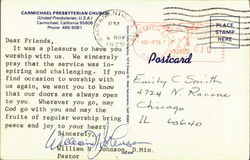 CARMICHAEL PRESBYTERIAN CHURCH
(United Presbyterian, U.S.A.)
Carmichael, California 95608
Phone 486-9081
Dear Friends,
It was a pleasure to have you
worship with us. We sincerely
pray that the service was in-
spiring and challenging. If you
find occasion to worship with
us again, we want you to know
that our doors are always open
to you. Wherever you go, may
God go with you and may the
fruits of regular worship bring
peace and joy to your heart
Sincerely,
William S Johnson, D.Min.
Pastor
Postcard
Emily C Smith
4724 N. Ravine
Chicago
IL 60640